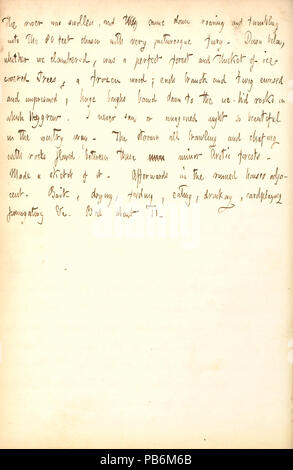 The river was swollen, and came down roaming and tumbling
into the 80 feet chasm with very picturesque fury. Down below,
whither we clambered, was a perfect forest and thicket of ice-
covered trees, a frozen wood; each branch and twig encased
and imprisoned; huge boughs bound down to the ice-hid rocks in
which they grew. I never saw or imagined aught so beautiful
in the wintry way. The stream all brawling and chafing
with rocks flowed between these minor Arctic forests.
Made a sketch of it. Afterwards in the ruined houses adja-
cent. Back, drying, feeding, eating, drinking, cardplaying
fumigating &c. Bed about 11.
alamy
Image ID: PB6M6B
www.alamy.com